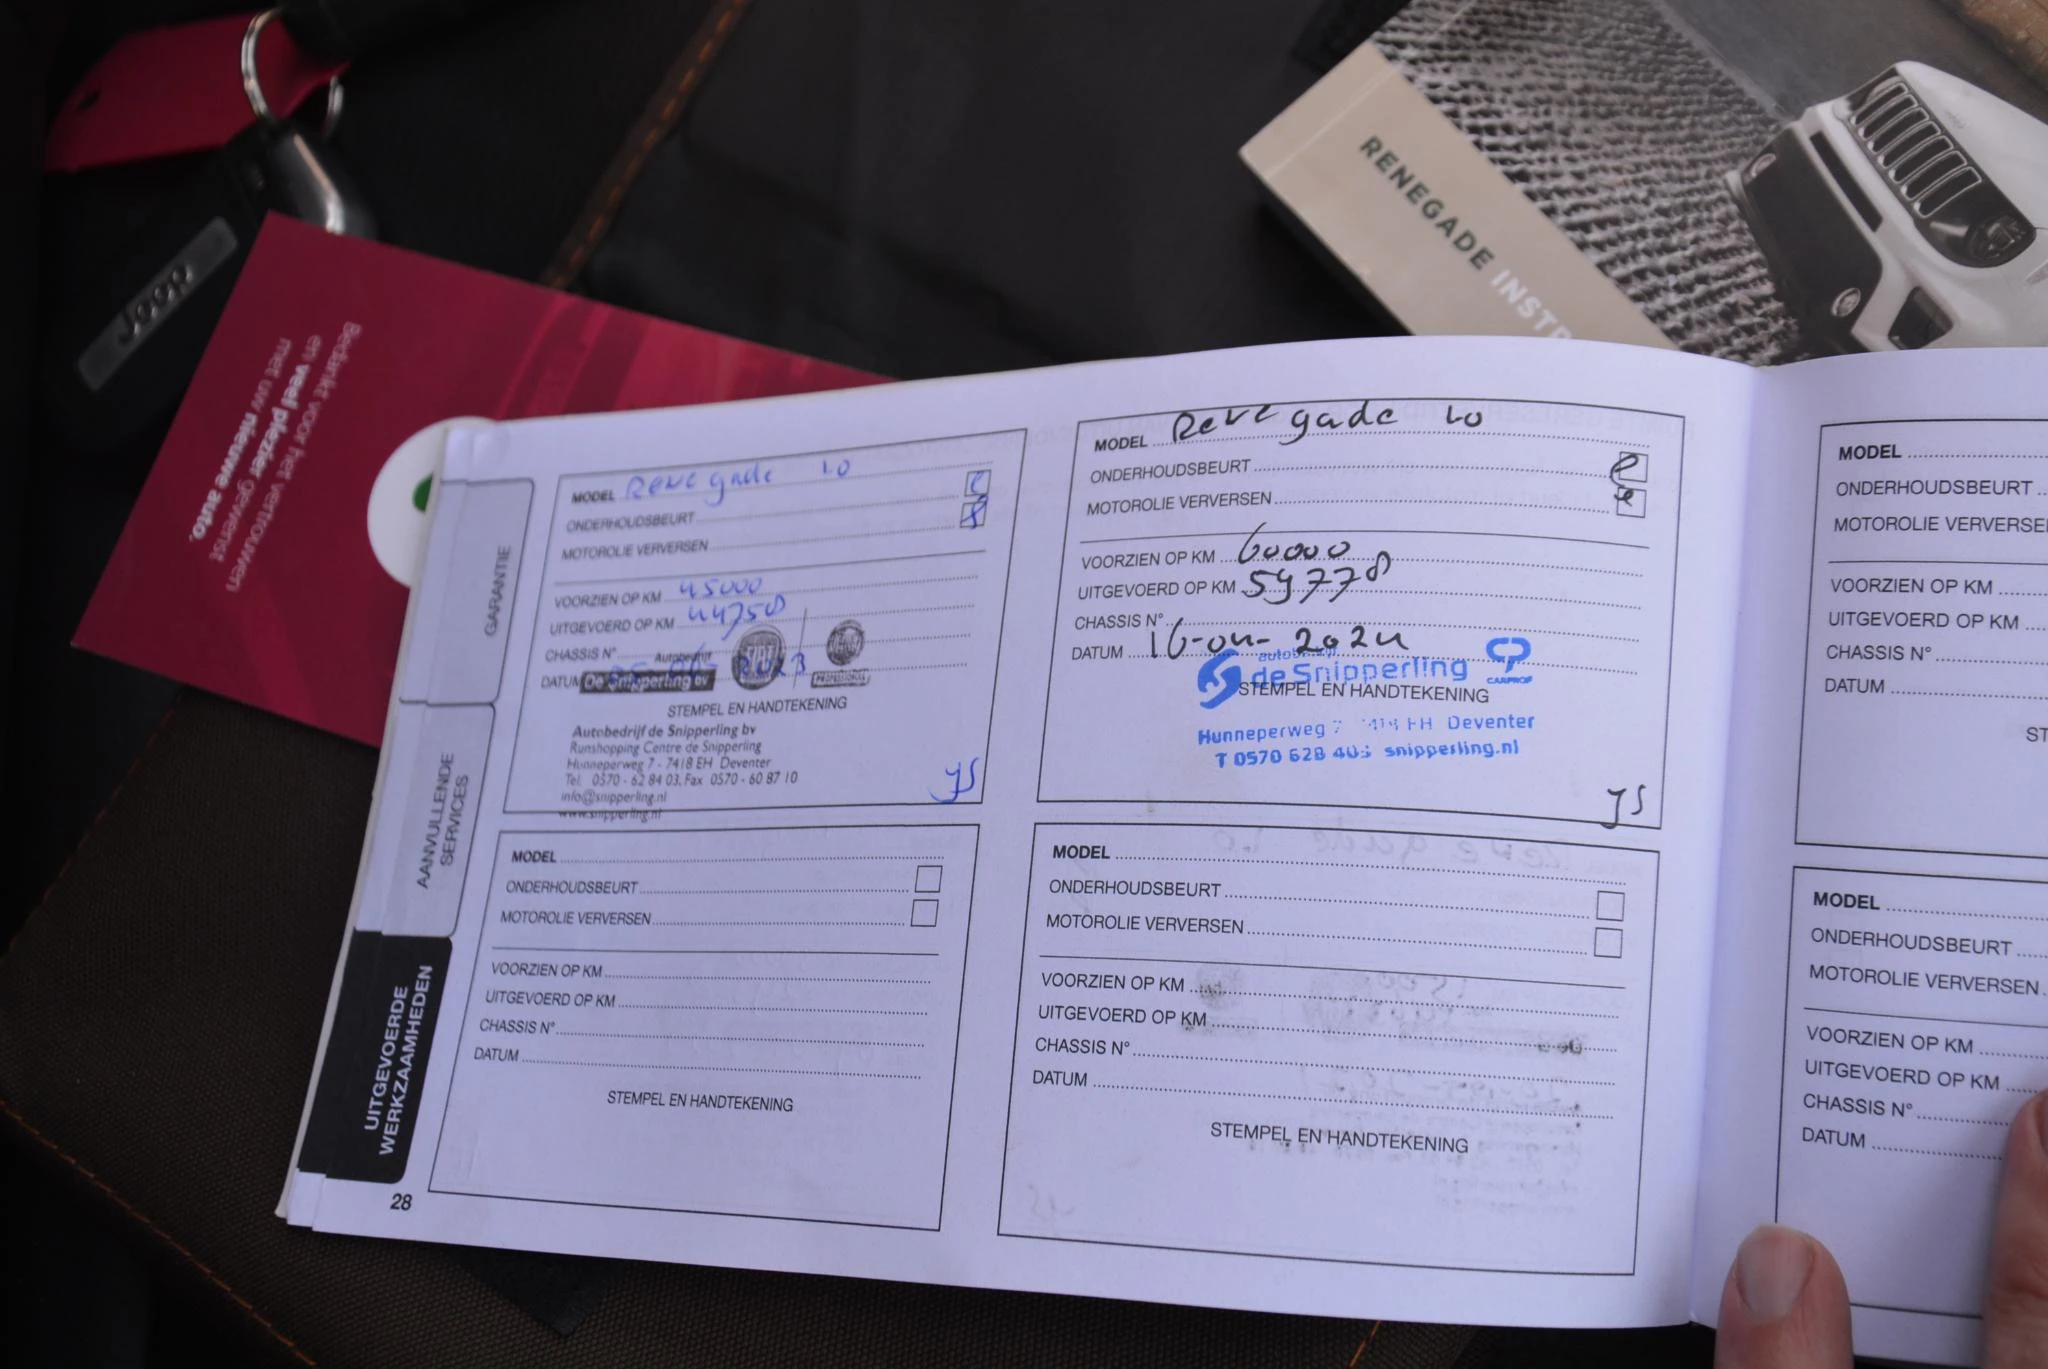 Jeep
Bedankt voor het vertrouwen
en veel plezier gewenst
met uw nieuwe auto.
RENEGADE INSTR
GARANTIE
AANVULLENDE
SERVICES
UITGEVOERDE
WERKZAAMHEDEN
28
MODEL Renegade 1.0
ONDERHOUDSBEURT
MOTOROLIE VERVERSEN
VOORZIEN OP KM 45000
UITGEVOERD OP KM 44758
CHASSIS N°
DATUM 2023
Autobedrijf
De Snipperling bv
FIAT
PROFESSIONAL
STEMPEL EN HANDTEKENING
Autobedrijf de Snipperling bv
Runshopping Centre de Snipperling
Hunneperweg 7 - 7418 EH Deventer
Tel. 0570 - 62 84 03, Fax 0570 - 60 87 10
info@snipperling.nl
www.snipperling.nl
YS
MODEL Renegade 1.0
ONDERHOUDSBEURT
MOTOROLIE VERVERSEN
VOORZIEN OP KM 60000
UITGEVOERD OP KM 59778
CHASSIS N°
DATUM 16-04-2024
autobedrijf
de Snipperling
CP
CARPROF
STEMPEL EN HANDTEKENING
Hunneperweg 7 7418 EH Deventer
T 0570 628 403 snipperling.nl
YS
MODEL
ONDERHOUDSBEURT
MOTOROLIE VERVERSEN
VOORZIEN OP KM
UITGEVOERD OP KM
CHASSIS N°
DATUM
STEMPEL EN HANDTEKENING
MODEL
ONDERHOUDSBEURT
MOTOROLIE VERVERSEN
VOORZIEN OP KM
UITGEVOERD OP KM
CHASSIS N°
DATUM
STEMPEL EN HANDTEKENING
MODEL
ONDERHOUDSBEURT
MOTOROLIE VERVERSE
VOORZIEN OP KM
UITGEVOERD OP KM
CHASSIS N°
DATUM
ST
MODEL
ONDERHOUDSBEURT
MOTOROLIE VERVERSEN
VOORZIEN OP KM
UITGEVOERD OP KM
CHASSIS N°
DATUM